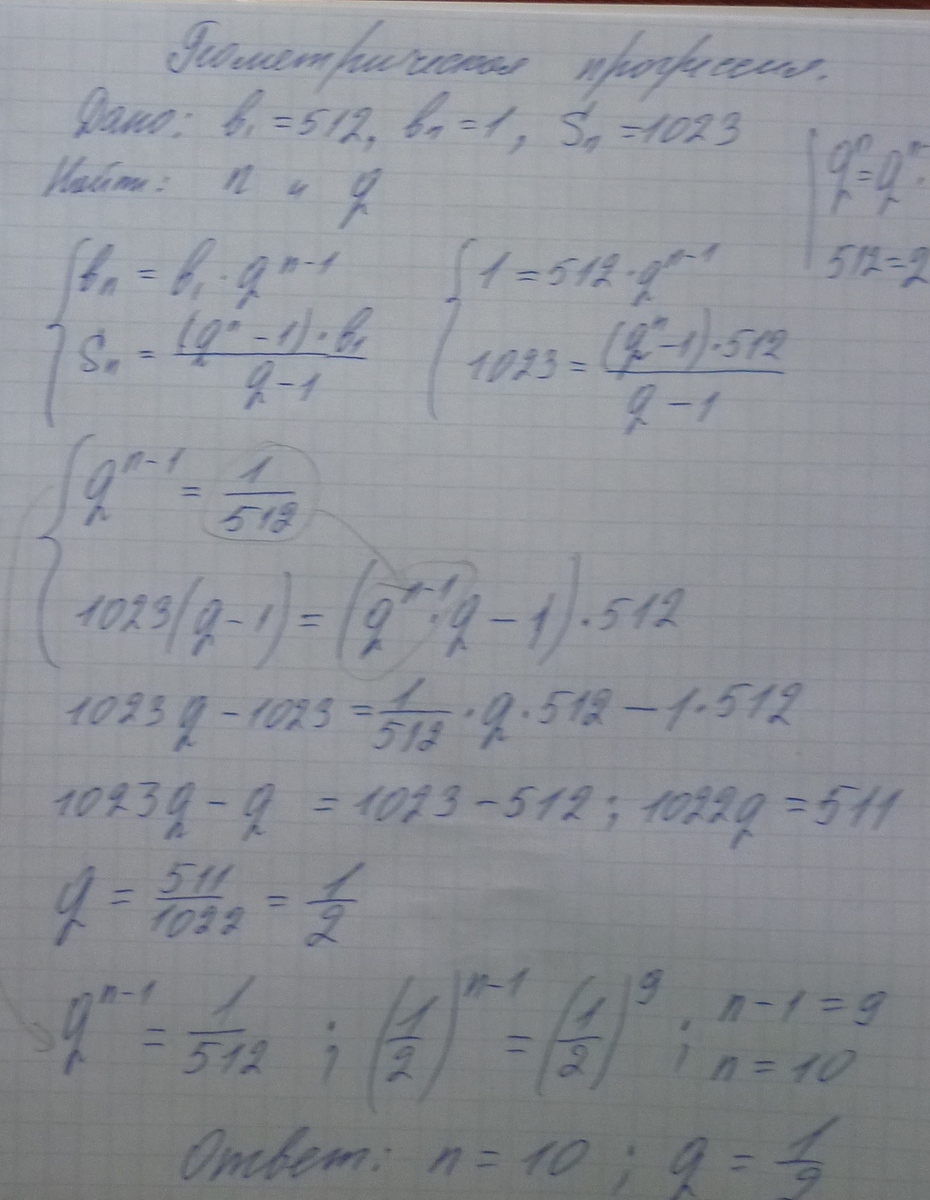 Геометрическая прогрессия.
Дано: b₁ = 512, bₙ = 1, Sₙ = 1023
Найти: n и q
qⁿ = qⁿ⁻ ·
512 = 2
{ bₙ = b₁ · qⁿ⁻¹
Sₙ = (qⁿ - 1) · b₁ / q - 1
{ 1 = 512 · qⁿ⁻¹
1023 = (qⁿ - 1) · 512 / q - 1
{ qⁿ⁻¹ = 1/512
1023(q - 1) = (qⁿ⁻¹ · q - 1) · 512
1023q - 1023 = 1/512 · q · 512 - 1 · 512
1023q - q = 1023 - 512 ; 1022q = 511
q = 511/1022 = 1/2
qⁿ⁻¹ = 1/512 ; (1/2)ⁿ⁻¹ = (1/2)⁹ ; n - 1 = 9
n = 10
Ответ: n = 10 ; q = 1/2